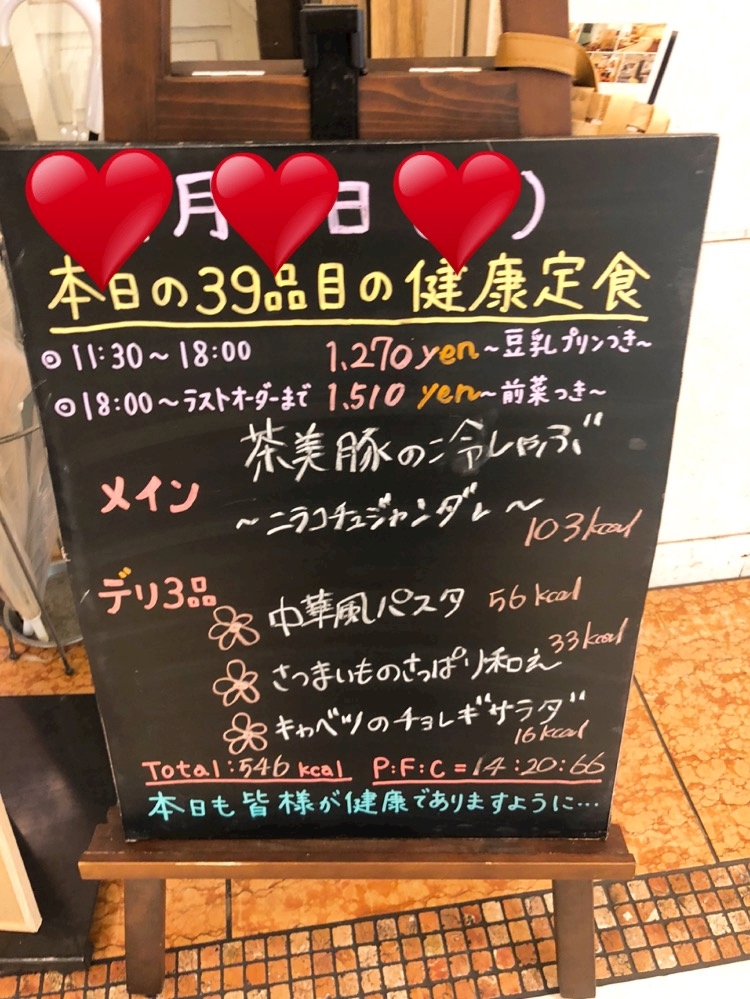 月 日 )
本日の39品目の健康定食
◎11:30～18:00 1,270yen～豆乳プリンつき～
◎18:00～ラストオーダーまで 1,510 yen～前菜つき～
茶美豚の冷しゃぶ
メイン
～ニラコチュジャンダレ～
103kcal
デリ3品
中華風パスタ 56kcal
さつまいものさっぱり和え 33kcal
キャベツのチョレギサラダ
16kcal
Total:546kcal P:F:C=14:20:66
本日も皆様が健康でありますように…